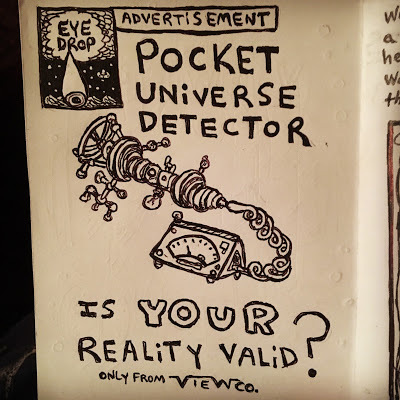 EYE
DROP
ADVERTISEMENT
POCKET
UNiVERSE
DETECTOR
iS YOUR
REALITY VALiD?
ONLY FROM VIEWCO.
W
a
he
Wo
th